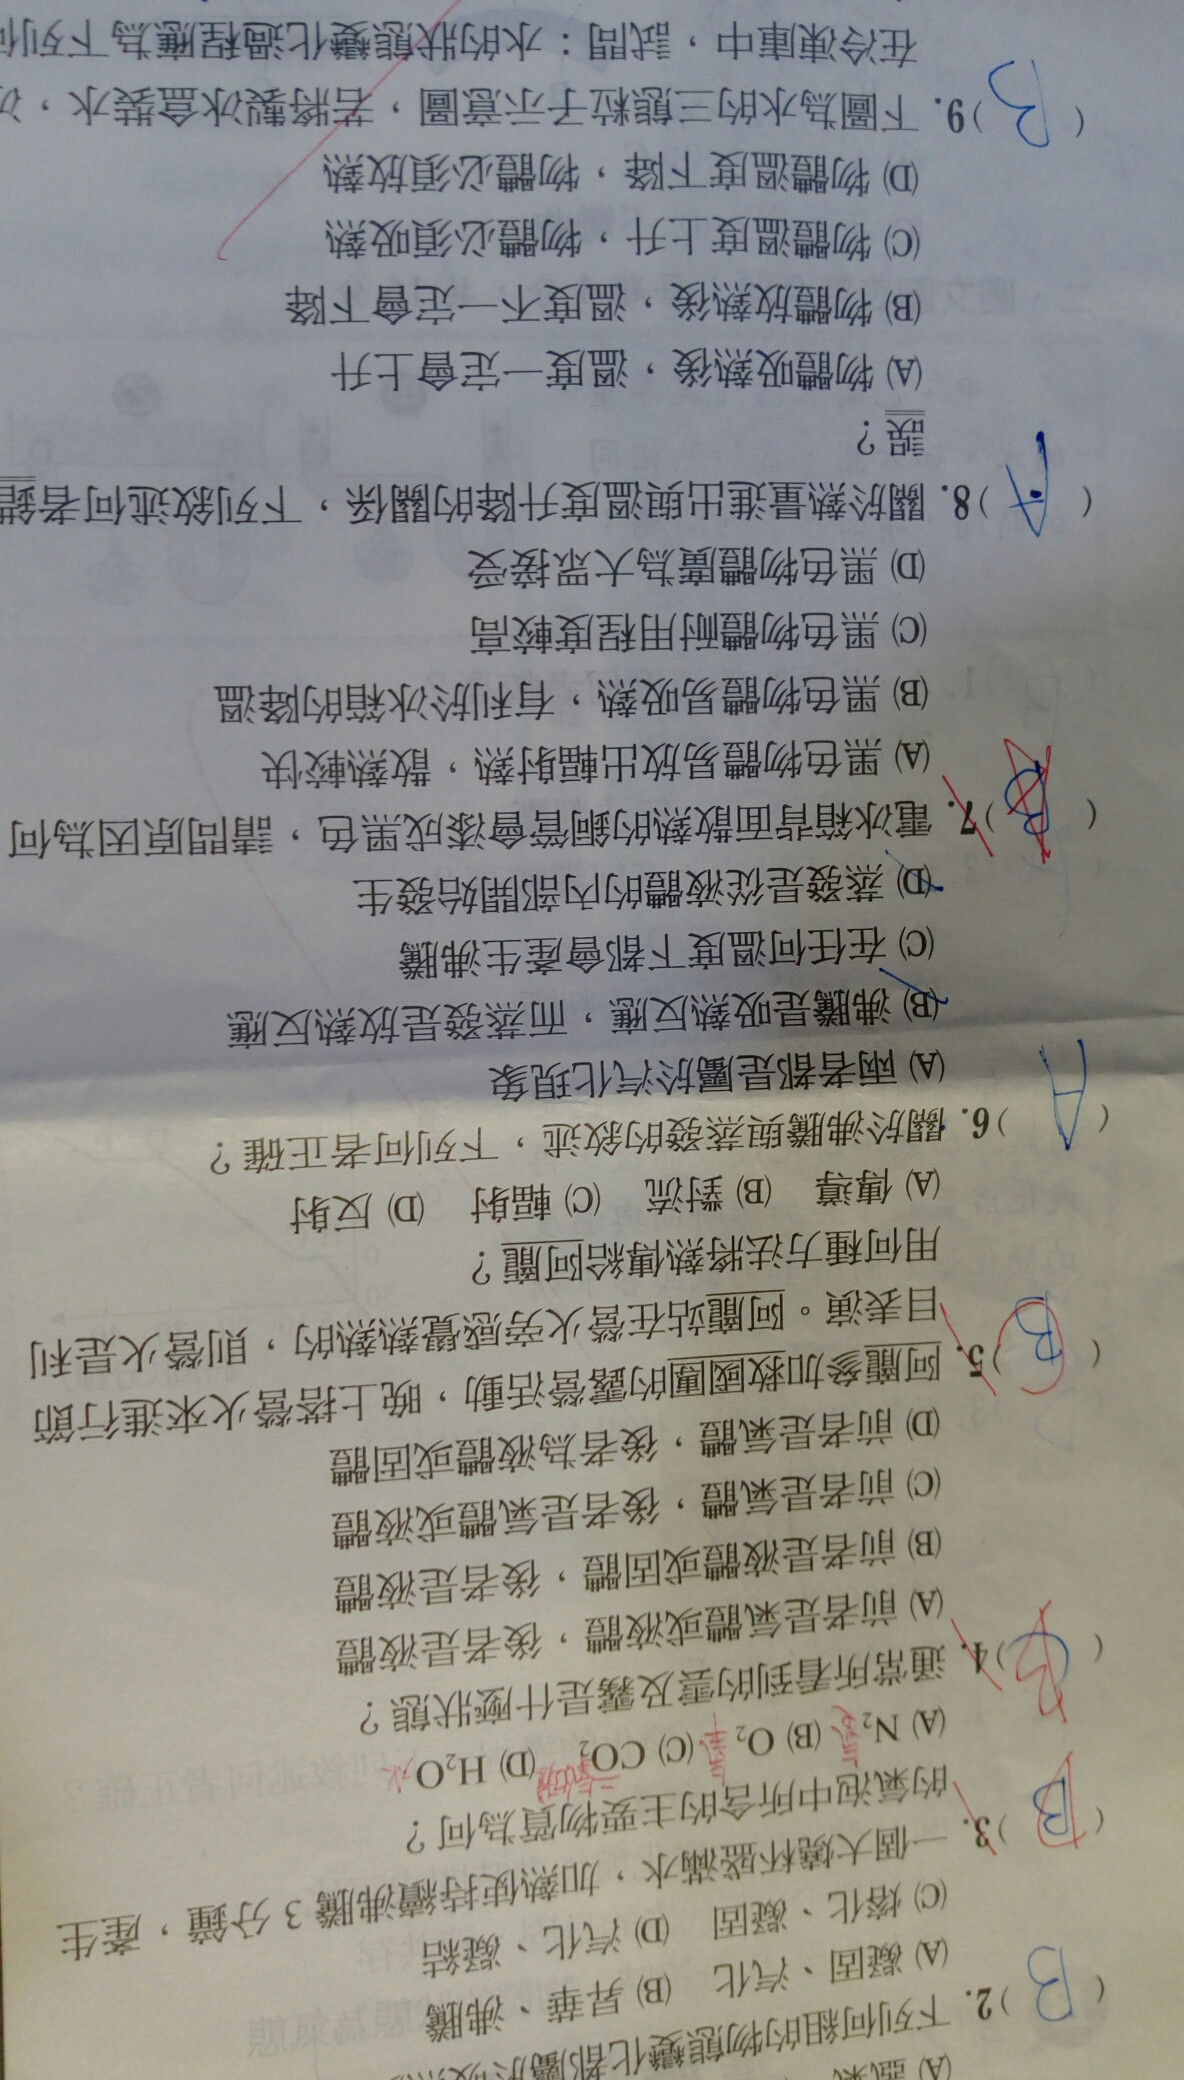 (A) 蒸氣
( B ) 2. 下列何組的物態變化都屬於吸熱
(A) 凝固、汽化 (B) 昇華、沸騰
(C) 熔化、凝固 (D) 汽化、凝結
( B D ) 3. 一個大燒杯盛滿水，加熱使持續沸騰 3 分鐘，產生
的氣泡中所含的主要物質為何？
(A) N₂ 氮氣 (B) O₂ 氧氣 (C) CO₂ 二氧化碳 (D) H₂O 水
( C B ) 4. 通常所看到的雲及霧是什麼狀態？
(A) 前者是氣體或液體，後者是液體
(B) 前者是液體或固體，後者是液體
(C) 前者是氣體，後者是氣體或液體
(D) 前者是氣體，後者為液體或固體
( B C ) 5. 阿龐參加救國團的露營活動，晚上搭營火來進行節
目表演。阿龐站在營火旁感覺熱熱的，則營火是利
用何種方法將熱傳給阿龐？
(A) 傳導 (B) 對流 (C) 輻射 (D) 反射
( A ) 6. 關於沸騰與蒸發的敘述，下列何者正確？
(A) 兩者都是屬於汽化現象
(B) 沸騰是吸熱反應，而蒸發是放熱反應
(C) 在任何溫度下都會產生沸騰
(D) 蒸發是從液體的內部開始發生
( B A ) 7. 電冰箱背面散熱的銅管會漆成黑色，請問原因為何
(A) 黑色物體易放出輻射熱，散熱較快
(B) 黑色物體易吸熱，有利於冰箱的降溫
(C) 黑色物體耐用程度較高
(D) 黑色物體廣為大眾接受
( A ) 8. 關於熱量進出與溫度升降的關係，下列敘述何者錯
誤？
(A) 物體吸熱後，溫度一定會上升
(B) 物體放熱後，溫度不一定會下降
(C) 物體溫度上升，物體必須吸熱
(D) 物體溫度下降，物體必須放熱
( B ) 9. 下圖為水的三態粒子示意圖，若將製冰盒裝水，放
在冷凍庫中，試問：水的狀態變化過程應為下列何